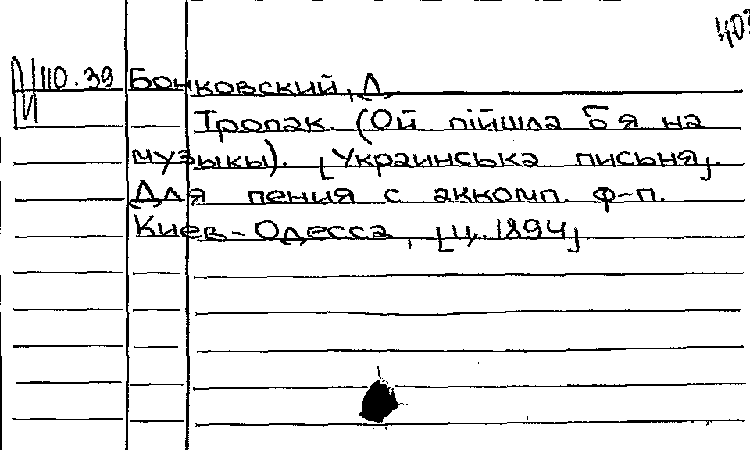 403
110.39 Бонковский, Д.
Тропак. (Ой пiйшла б я на
музыки). [Украинська письня].
Для пения с аккомп. ф-п.
Киев-Одесса, [ц.1894]